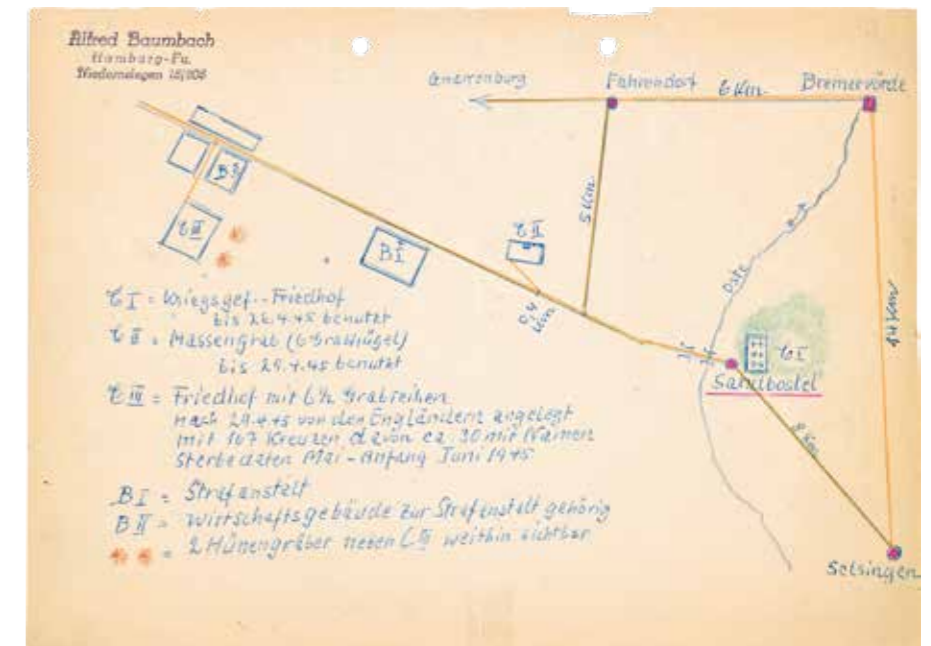 Alfred Baumbach
Hamburg-Fu.
Gnarrenburg
Fahrendorf
6 Km
Bremervörde
B II
C III
B I
C II
5 Km
0,4 Km
Oste
14 Km
C I
Sandbostel
9 Km
Selsingen
C I = Kriegsgef.-Friedhof
bis 26.4.45 benutzt
C II = Massengrab (6 Grabhügel)
bis 29.4.45 benutzt
C III = Friedhof mit 6½ Grabreihen
nach 29.4.45 von den Engländern angelegt
mit 107 Kreuzen davon ca. 30 mit Namen
Sterbedaten Mai-Anfang Juni 1945
B I = Strafanstalt
B II = Wirtschaftsgebäude zur Strafanstalt gehörig
= 2 Hünengräber neben C III weithin sichtbar